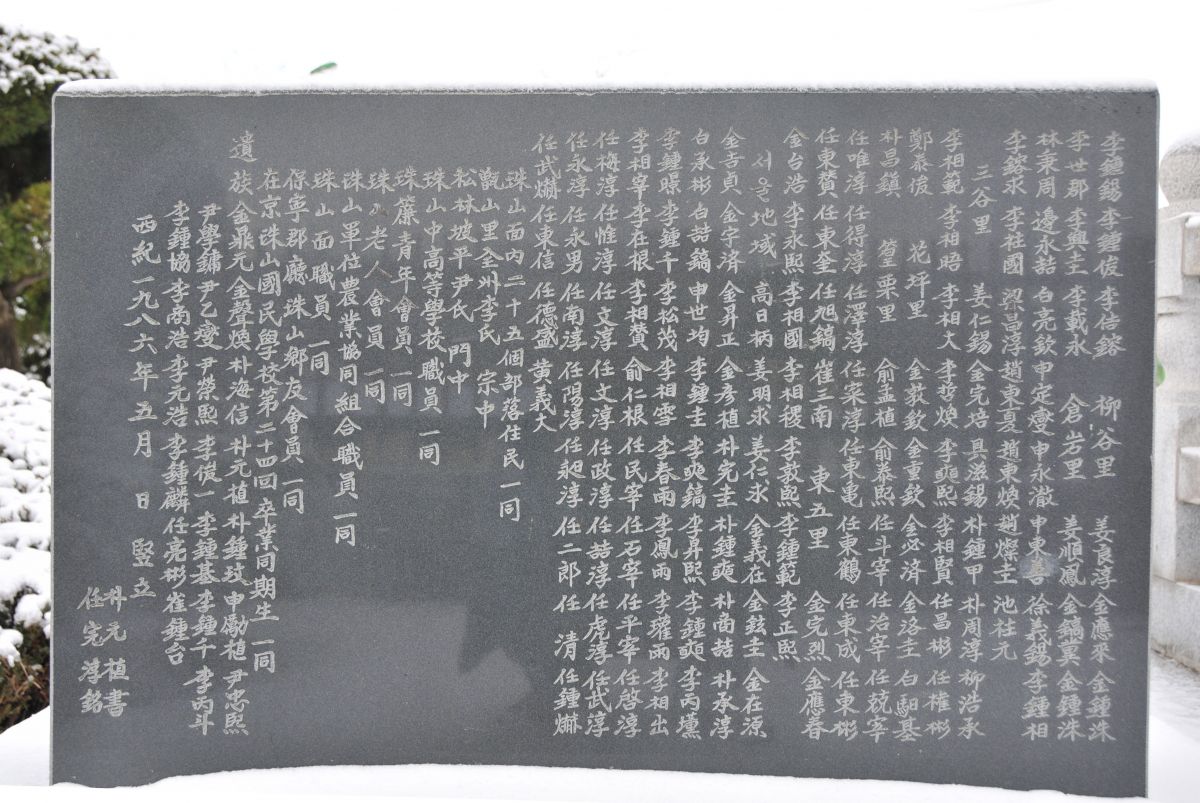 李鍾錫 李鍾俊 李信鎔 柳谷里 姜良淳 金應來 金鍾洙
李世那 李興圭 李載永 倉岩里 姜順鳳 金鎬冕 金鍾洙
林秉周 邊永喆 白亮欽 申定燮 申永澈 申東善 徐義錫 李鍾相
李鎔求 李社國 梁昌淳 趙東夏 趙東煥 趙燦圭 池柱元
三谷里 姜仁錫 金元培 具滋錫 朴鍾甲 朴周淳 柳浩承
李相範 李相晤 李相大 李哲煥 李奭熙 李相賢 任昌彬 任權彬
鄭泰俊 花坪里 金敎欽 金重欽 金必済 金洛圭 白馹基
朴昌鎭 篁栗里 俞孟植 俞泰熙 任斗宰 任治宰 任兢宰
任唯淳 任得淳 任澤淳 任寀淳 任東亀 任東鶴 任東成 任東彬
任東賛 任東奎 任旭鎬 崔三南 東五里 金完烈 金應春
金台浩 李永熙 李相國 李相稷 李敦熙 李鍾範 李正熙
서울地域 高日柄 姜明求 姜仁求 金義在 金鉉圭 金在源
金吉貞 金宇済 金昇正 金彦植 朴完圭 朴鍾奭 朴商喆 朴承淳
白承彬 白喆鎬 申世均 李鍾圭 李奭鎬 李昇熙 李鍾奭 李丙壎
李鍾暻 李鍾千 李松茂 李相雪 李春雨 李鳳雨 李瓘雨 李相出
李相宰 李在根 李相賛 俞仁根 任民宰 任石宰 任平宰 任啓淳
任梅淳 任惟淳 任文淳 任文淳 任政淳 任喆淳 任虎淳 任武淳
任永淳 任永男 任南淳 任陽淳 任昶淳 任二郎 任清 任鍾爀
任武爀 任東信 任德盛 黃義大
珠山面内二十五個部落住民一同
甑山里全州李氏 宗中
松林坡平尹氏 門中
珠山中高等學校職員一同
珠簾靑年會員一同
珠山老人會員一同
珠山單位農業協同組合職員一同
珠山面職員一同
保寧郡廳珠山鄕友會員一同
在京珠山國民學校第二十四回卒業同期生一同
遺族 金鼎元 金聲煥 朴海信 朴元植 朴鍾玟 申勵植 尹忠熙
尹學鏞 尹乙燮 尹榮熙 李俊一 李鍾基 李鍾千 李丙斗
李鍾協 李尚浩 李元浩 李鍾麟 任亮彬 崔鍾台
西紀一九八六年五月 日 竪立
朴元植書
任完淳銘